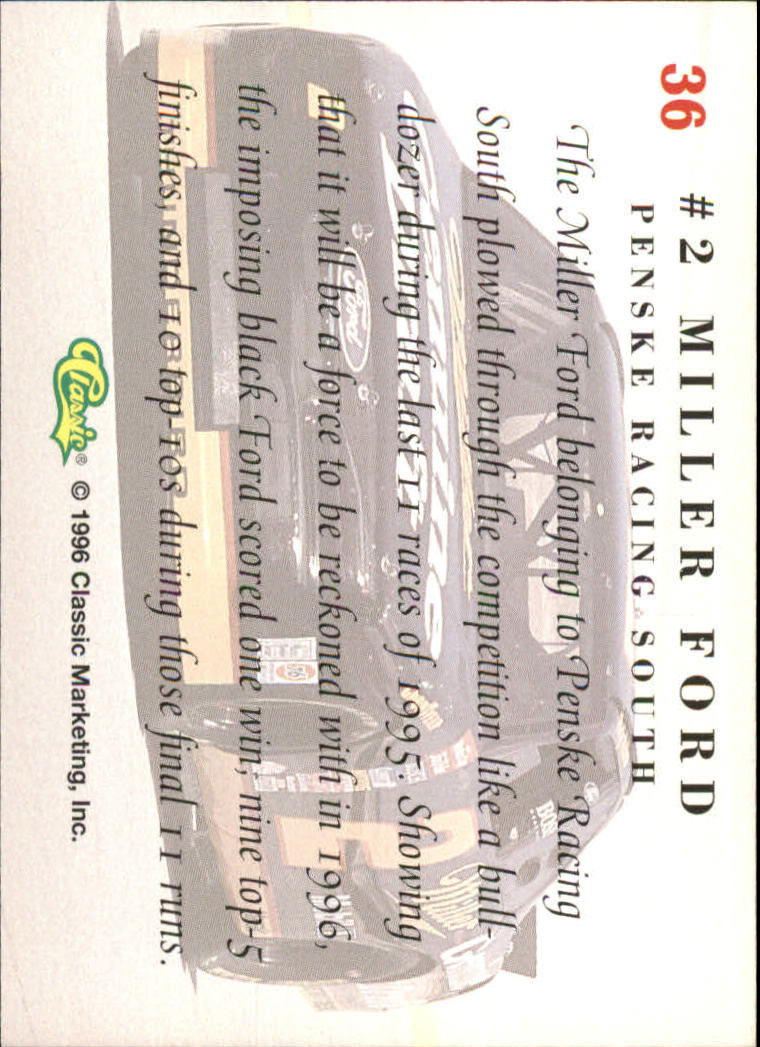 36
# 2 MILLER FORD
PENSKE RACING SOUTH
The Miller Ford belonging to Penske Racing
South plowed through the competition like a bull-
dozer during the last 11 races of 1995. Showing
that it will be a force to be reckoned with in 1996,
the imposing black Ford scored one win, nine top-5
finishes, and 10 top-10s during those final 11 runs.
Classic® © 1996 Classic Marketing, Inc.
Genuine
Ford
76
2
Miller